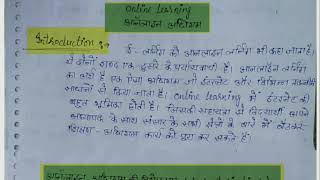 online learning
ऑनलाइन अधिगम
Introduction :-
ई - लर्निंग को ऑनलाइन लर्निंग भी कहा जाता है।
ये दोनों शब्द एक दूसरे के पर्यायवाची हैं। ऑनलाइन लर्निंग
का अर्थ है एक ऐसा अधिगम जो इंटरनेट और विभिन्न तकनीकी
साधनों से दिया जाता है। online learning में इंटरनेट की
बहुत भूमिका होती है। जिसकी सहायता से विद्यार्थी अपने
अध्यापक के साथ संसार के किसी भी कोने में बैठकर
शिक्षण - अधिगम कार्य को पूरा कर सकते हैं।
ऑनलाइन अधिगम की